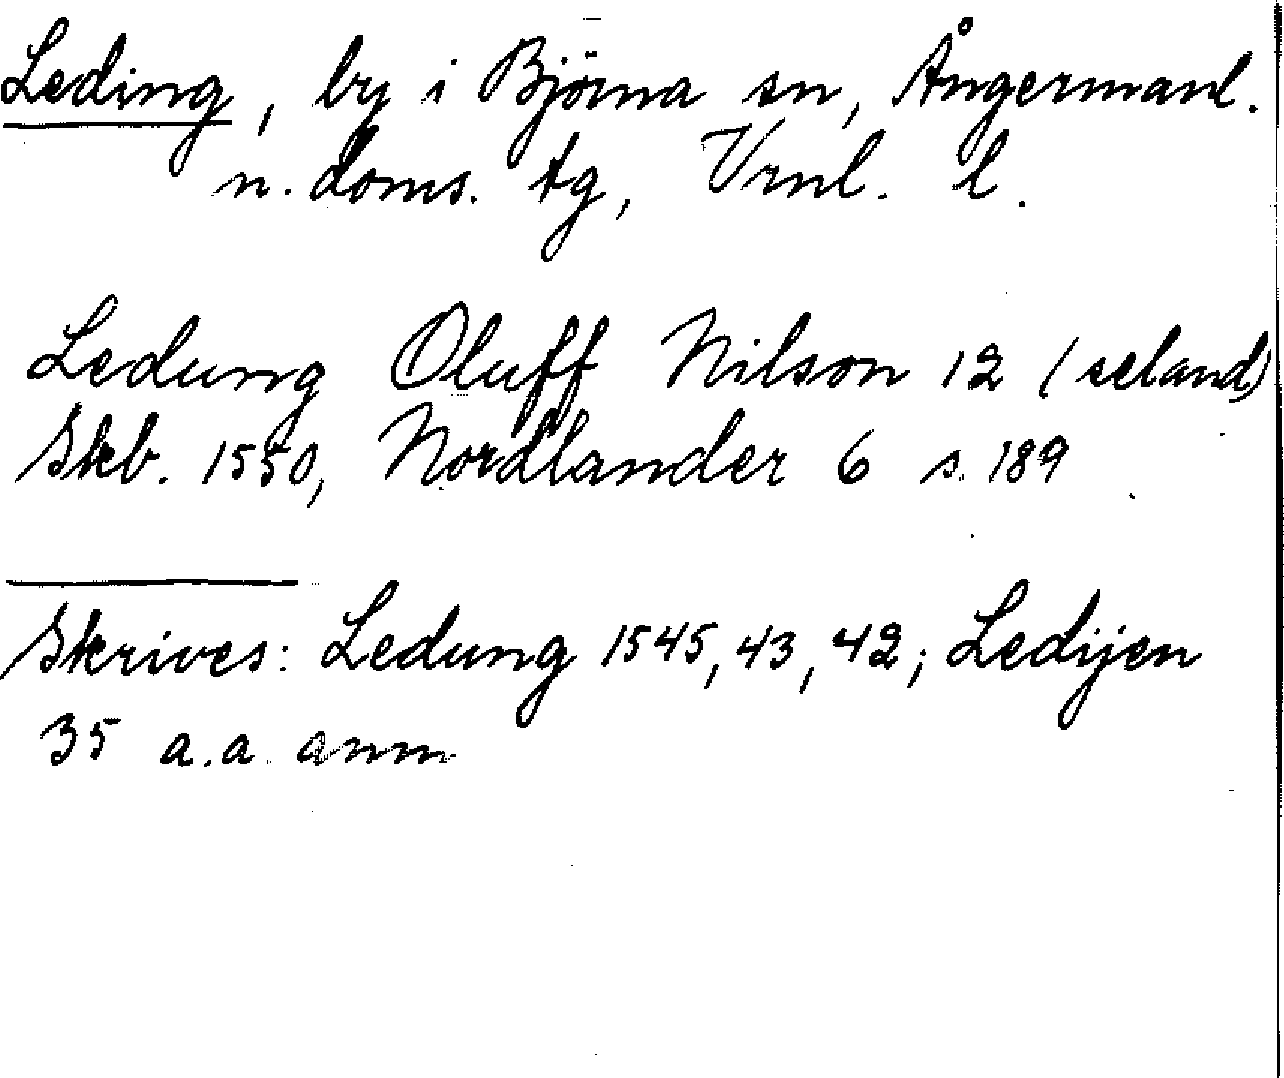 Leding, by i Björna sn, Ångermanl.
n. doms. tg, Vrnl. l.
Ledung Oluff Nilson 12 (seland)
Skb. 1550, Nordlander 6 s. 189
Skrives: Ledung 1545, 43, 42; Ledijen
35 a.a. anm